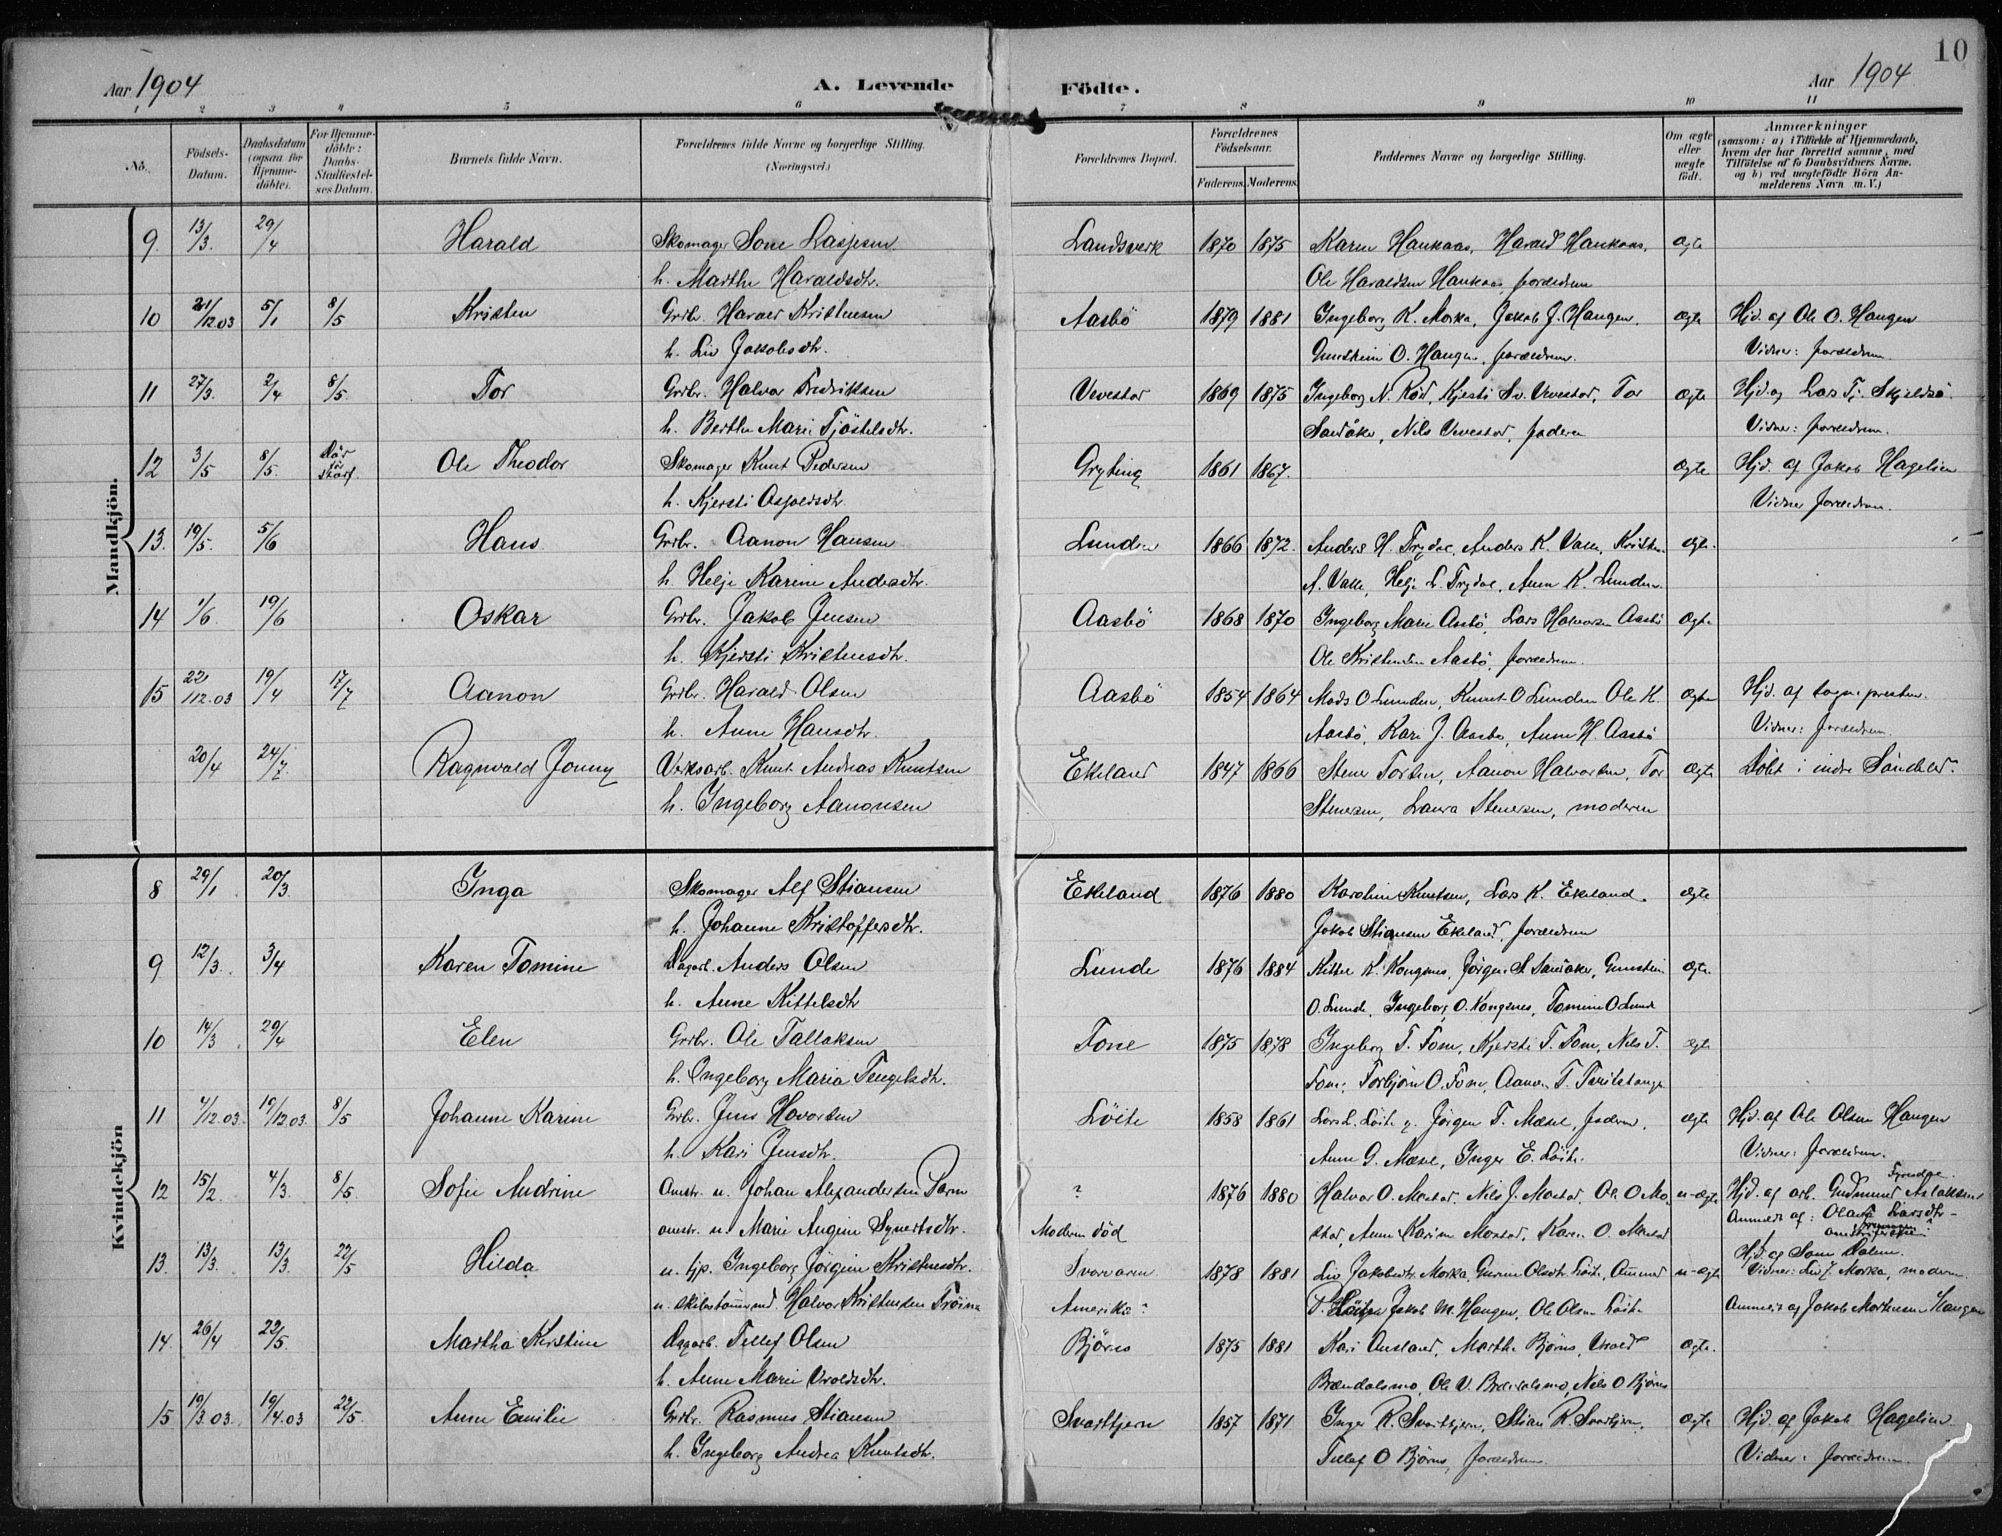 10
Aar 1904
A. Levende Födte.
Aar 1904
1 2 3 4 5 6 7 8 9 10 11
No.
Födsels-Datum.
Daabsdatum (ogsaa for Hjemme-döbte).
For Hjemme-döbte: Daabs-Stadfæstel-ses-Datum.
Barnets fulde Navn.
Forældrenes fulde Navne og borgerlige Stilling. (Næringsvei.)
Forældrenes Bopæl.
Forældrenes Födselsaar.
Faderens. Moderens.
Faddernes Navne og borgerlige Stilling.
Om ægte eller uægte födt.
Anmærkninger
(saasom: a) i Tilfælde af Hjemmedaab, hvem der har forrettet samme, med Tilföielse af to Daabsvidners Navne, og b) ved uægtefödte Börn Anmelderens Navn m. V.)
Mandkjön.
9. 13/3. 29/4 Harald Skomager Lasjesen Landsverk 1870 1875 Karen Haukaas, Harald Haukaas, ægte
h. Marthe Haraldsdtr. Ole Haraldsen Haukaas, forældrene
10 21/12.03 5/1 8/5 Kristen Grdbr. Harald Kristensen Aasbö 1879 1881 Ingeborg K. Morka, Jakob J. Haugen. ægte Hjd. af Ole O. Haugen
h. Liv Jakobsdtr. O. Haugen, forældrene. Vidner: forældrene.
11 27/3. 2/4 8/5. Tor Grdbr. Halvor Fredriksen Vevestad 1869 1875 Ingeborg N. Röd, Kjersti Sv. Vevestad, Tor ægte Hjd. af Las Tj.
h. Berthe Marie Tjöstelsdtr. Sandåker, Nils Vevestad, faderen Vidner: forældrene.
12 3/5 8/5. Ole Theodor Skomager Knut Pedersen Gryting 1861 1867. ægte Hjd. af Jakob Hagelien
h. Kjersti Osjoldsdtr Vidner forældrene.
13. 19/5. 5/6 Hans. Grdbr. Aanon Hansen Lunden 1866 1872. Anders H. Trydal, Anders K. Valle, Kristen ægte.
h. Helje Karine Andersdtr. A. Valle, Helje L. Trydal, Anne K. Lunden.
14 1/6. 19/6 Oskar Grdbr. Jakob Jensen Aasbö 1868 1870 Ingeborg Marie Aasbö, Lars Halvorsen Aasbö ægte
h. Kjersti Kristensdtr. Ole Kristensen Aasbö, forældrene.
15 22/12.03 19/4 17/7 Aanon Grdbr. Harald Olsen Aasbö 1854 1864 Mads O Lunden, Knut O Lunden Ole K. ægte Hjd. af sognepresten.
h. Anne Hansdtr. Aasbö, Kari J. Aasbö, Anne H. Aasbö Vidner: forældrene.
20/4 24/7. Ragnvald Jonny Verksarb. Knut Andreas Knutsen Ekeland 1847 1866 Stener Torsen, Aanon Halvorsen, Tor ægte Döbt i indre Söndeled.
h. Ingeborg Aanonsen Stenersen, Laura Stenersen, moderen
Kvindekjön
8 29/1. 20/3. Inga Skomager Alf Stiansen Ekeland 1876 1880 Karoline Knutsen, Las K. Ekeland. ægte
h. Johanne Kristoffersdtr. Jakob Stiansen Ekeland, forældrene
9 12/3. 3/4 Karen Tomine Dagarb. Anders Olsen Lunde 1876 1884 Kittel K. Kongsnes, Jörgen S. Sandåker, Gunstein ægte.
h. Anne Kittelsdtr O. Lunde, Ingeborg O. Kongsnes, Tomine O Lunde
10 14/3 29/4 Elen Grdbr. Ole Tallaksen Tone 1875 1878 Ingeborg T. Tone, Kjersti T. Tone, Nils T. ægte
h. Ingeborg Maria Tengelsdtr. Tone, Torbjön O. Tone, Aanon T.
11 4/12.03. 19/12.03. 8/5 Johanne Karine Grdbr. Jens Hovorsen Löite 1858 1861 Lars L. Löite, Jörgen T. Mæsel, faderen, ægte Hjd. af Ole Olsen Haugen
h. Kari Jensdtr. Anne G. Mæsel, Inger E. Löite. Vidner: forældrene.
12 15/2. 4/3. 8/5. Sofie Andrine Omstr. u. Johan Alexandersen ? 1876 1880 Halvor O. Mostad, Nils J. Mostad, Ole O Mo- u-ægte Hjd. af arb. Gudmund Aslaksen
omstr. u. Marie Angine Synertsdtr. Moderen död stad, Anne Karine Mostad, Karen O. Mostad Anmeldt af: Larsdtr
13. 13/3. 13/3. 22/5 Hilda u. tjp. Ingeborg Jörgine Kristensdtr. 1878 1881 Liv Jakobsdtr Morka, Gurine Olsdtr. Löite, u-ægte Hjd. af
Vidner: Liv J. Morka, moderen.
u. Halvor Kristensen Amerika? Jakob M. Haugen, Ole Olsen Löite Anmeldt af Jakob Mortensen Haugen
14. 26/4 22/5. Martha Kristine Dagarb. Tellef Olsen Björnes 1875 1881 Kari Ausland, Marthe Björnes, ægte.
h. Anne Marie Vraldsdtr. Brændalsmo, Ole V. Brændalsmo, Nils O Björnes
15 19/3.03. 19/4.03 22/5. Anne Emilie Grdbr. Rasmus Stiansen Svartbjern 1857 1871 Inger R. Svartbjern, Stian R. Svartbjern, ægte Hjd. af Jakob Hagelien
h. Ingeborg Andrea Knutsdtr. Tellef O Björnes, forældrene. Vidner: forældrene.